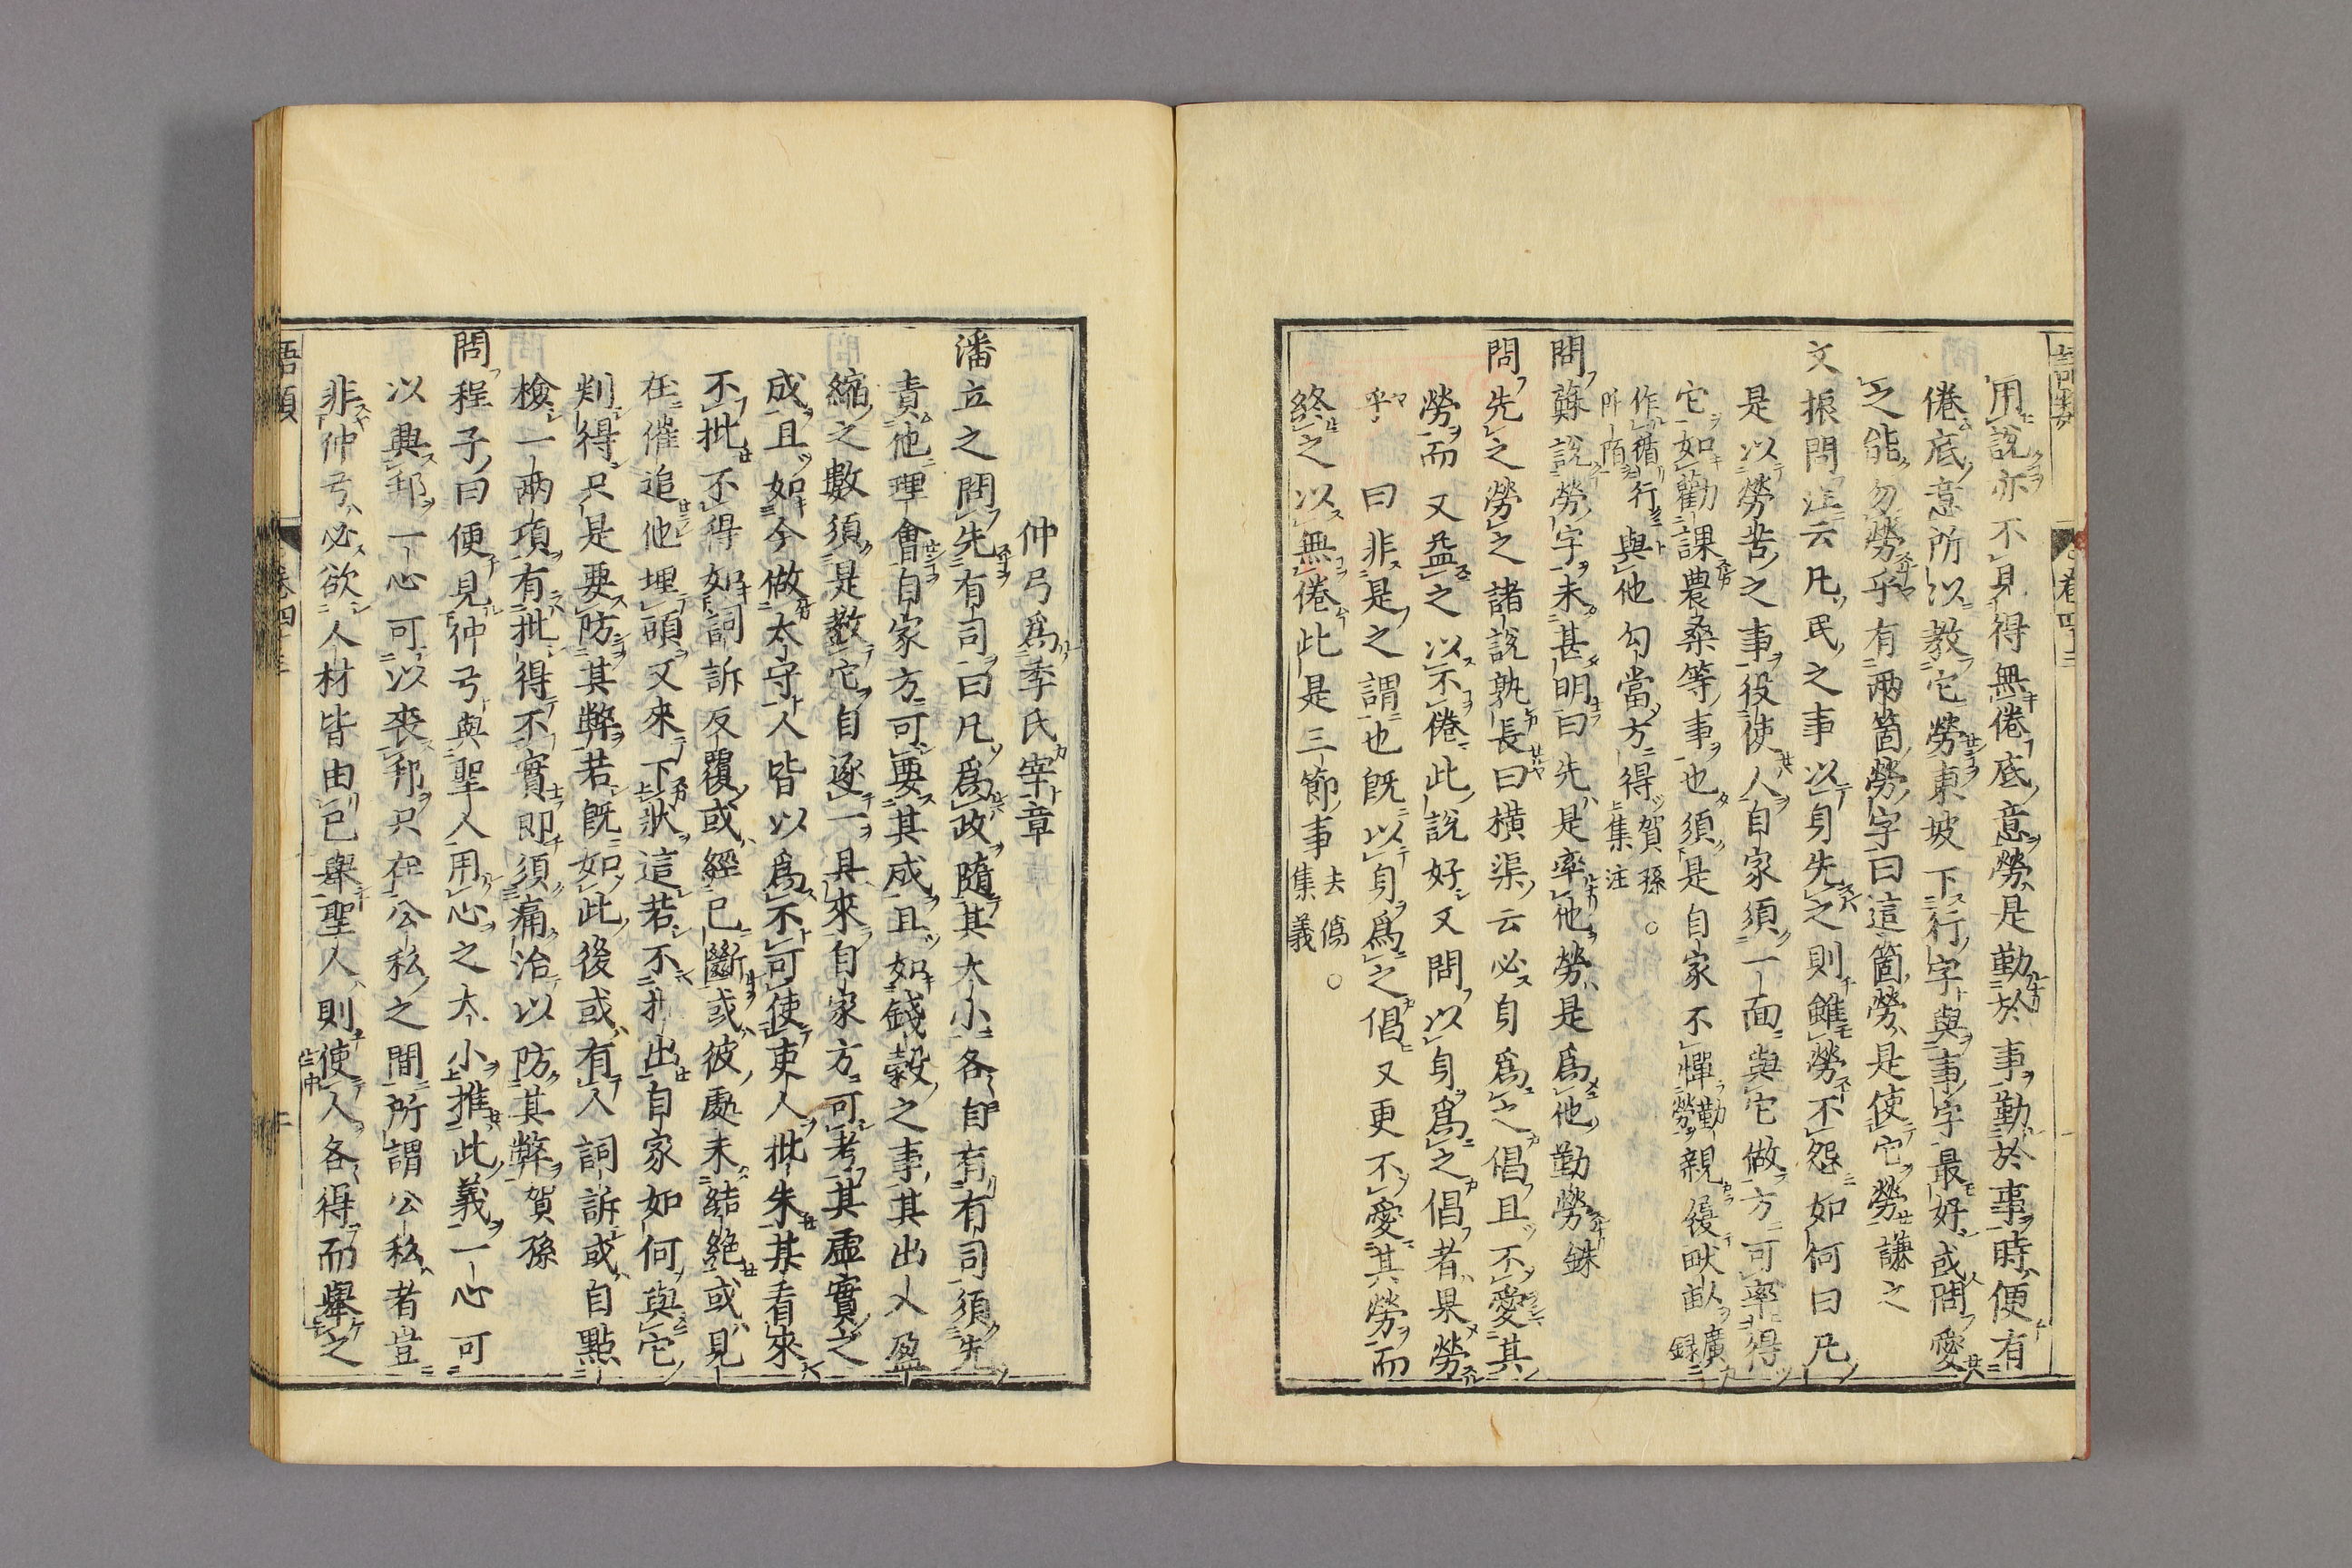 用說亦不見得無倦底意勞是勤於事勤於事時便有
倦底意所以教它勞東坡下行字與事字最好或問愛
之能勿勞乎有兩箇勞字曰這箇勞是使它勞謙之
文振問注云凡民之事以身先之則雖勞不怨如何曰凡
是以勞苦之事役使人自家須一面與它做方可率得
它如勸課農桑等事也須是自家不憚勤勞親履畎畝廣錄
作循行阡陌與他勾當方得賀孫○集注
問蘇說勞字未甚明曰先是率他勞是爲他勤勞銖
問先之勞之諸說孰長曰橫渠云必身爲之倡且不愛其
勞而又益之以不倦此說好又問以身爲之倡者果勞
乎曰非是之謂也旣以身爲之倡又更不愛其勞而
終之以無倦此是三節事去僞○集義
仲弓爲季氏宰章
潘立之問先有司曰凡爲政隨其大小各自有有司須先
責他理會自家方可要其成且如錢穀之事其出入盈
縮之數須是教它自逐一具來自家方可考其虛實之
成且如今做太守人皆以爲不可使吏人批朱某看來
不批不得如詞訴反覆或經已斷或彼處未結絕或見
在催追他埋頭又來下狀這若不批出自家如何與它
判得只是要防其弊若旣如此後或有人詞訴或自點
檢一兩項有批得不實卽須痛治以防其弊賀孫
問程子曰便見仲弓與聖人用心之大小推此義一心可
以興邦一心可以喪邦只在公私之間所謂公私者豈
非仲弓必欲人材皆由己舉聖人則使人各得而舉之
語類
卷四十三